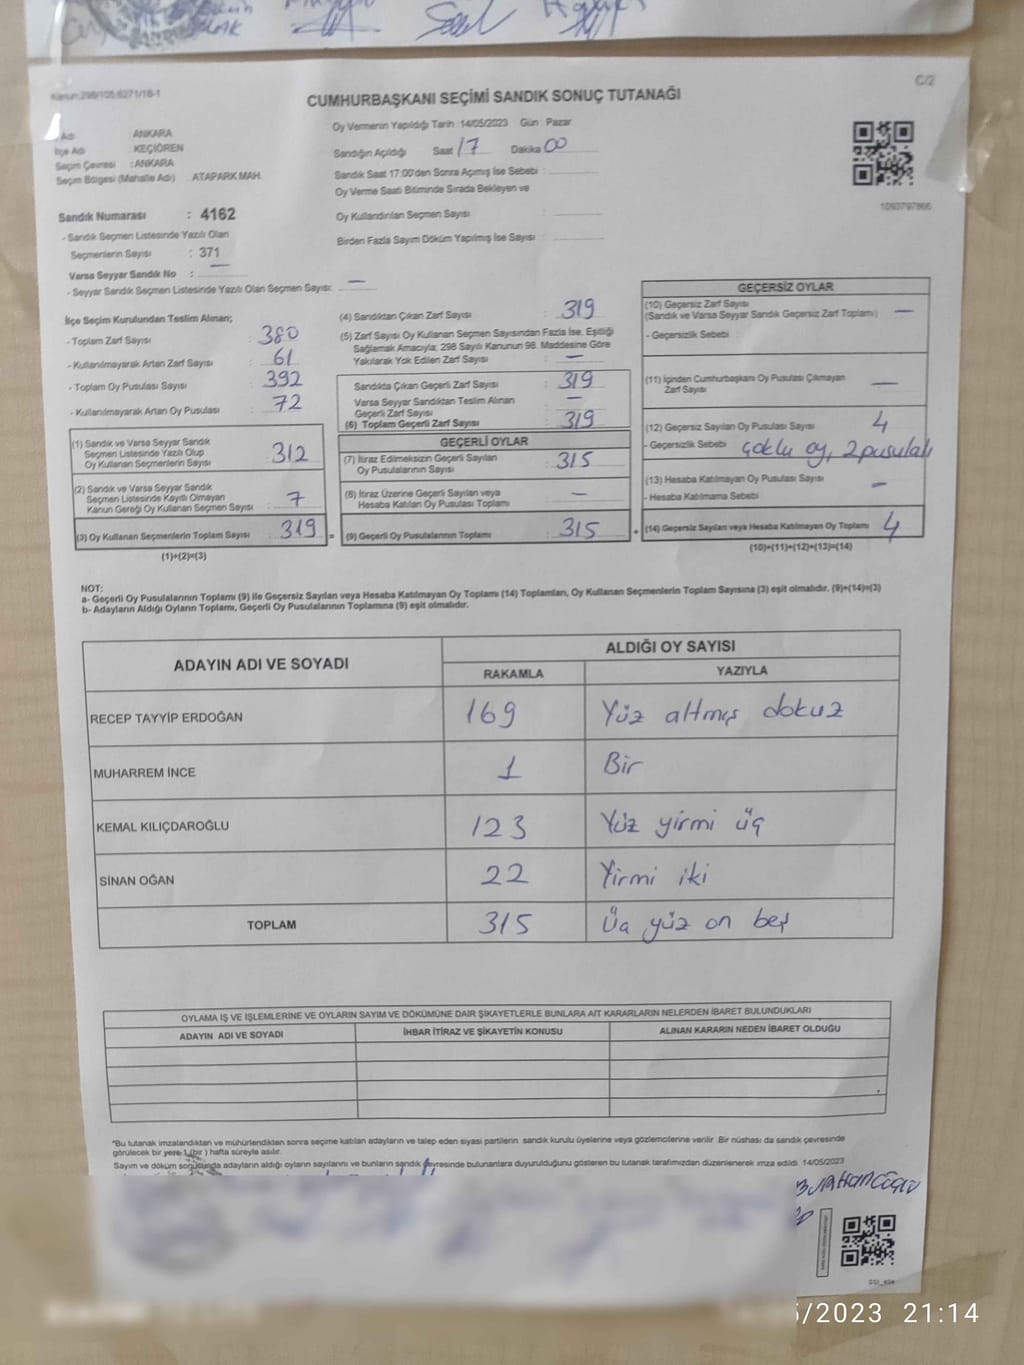 C/2
CUMHURBAŞKANI SEÇİMİ SANDIK SONUÇ TUTANAĞI
Adı ANKARA
İlçe Adı KEÇİÖREN
Seçim Çevresi : ANKARA
Seçim Bölgesi (Mahalle Adı) ATAPARK MAH.
Oy Vermenin Yapıldığı Tarih :14/05/2023 Gün : Pazar
Sandığın Açıldığı Saat 17 Dakika 00
Sandık Saat 17:00'den Sonra Açımış İse Sebebi :
Oy Verme Saati Bitiminde Sırada Bekleyen ve
Oy Kullandırılan Seçmen Sayısı :
Birden Fazla Sayım Döküm Yapılmış İse Sayısı :
1093797866
Sandık Numarası : 4162
- Sandık Seçmen Listesinde Yazılı Olan
Seçmenlerin Sayısı : 371
Varsa Seyyar Sandık No : —
- Seyyar Sandık Seçmen Listesinde Yazılı Olan Seçmen Sayısı: —
İlçe Seçim Kurulundan Teslim Alınan;
- Toplam Zarf Sayısı : 380
- Kullanılmayarak Artan Zarf Sayısı : 61
- Toplam Oy Pusulası Sayısı : 392
- Kullanılmayarak Artan Oy Pusulası : 72
(1) Sandık ve Varsa Seyyar Sandık
Seçmen Listesinde Yazılı Olup
Oy Kullanan Seçmenlerin Sayısı : 312
(2) Sandık ve Varsa Seyyar Sandık
Seçmen Listesinde Kayıtlı Olmayan
Kanun Gereği Oy Kullanan Seçmen Sayısı : 7
(3) Oy Kullanan Seçmenlerin Toplam Sayısı : 319 =
(1)+(2)=(3)
(4) Sandıktan Çıkan Zarf Sayısı : 319
(5) Zarf Sayısı Oy Kullanan Seçmen Sayısından Fazla İse, Eşitliği
Sağlamak Amacıyla; 298 Sayılı Kanunun 98. Maddesine Göre
Yakılarak Yok Edilen Zarf Sayısı : —
Sandıkta Çıkan Geçerli Zarf Sayısı : 319
Varsa Seyyar Sandıktan Teslim Alınan
Geçerli Zarf Sayısı : —
(6) Toplam Geçerli Zarf Sayısı : 319
GEÇERLİ OYLAR
(7) İtiraz Edilmeksizin Geçerli Sayılan
Oy Pusulalarının Sayısı : 315
(8) İtiraz Üzerine Geçerli Sayılan veya
Hesaba Katılan Oy Pusulası Toplamı : —
(9) Geçerli Oy Pusulalarının Toplamı : 315 +
GEÇERSİZ OYLAR
(10) Geçersiz Zarf Sayısı
(Sandık ve Varsa Seyyar Sandık Geçersiz Zarf Toplamı) : —
- Geçersizlik Sebebi
(11) İçinden Cumhurbaşkanı Oy Pusulası Çıkmayan
Zarf Sayısı —
(12) Geçersiz Sayılan Oy Pusulası Sayısı : 4
- Geçersizlik Sebebi çoklu oy, 2 pusulalı
(13) Hesaba Katılmayan Oy Pusulası Sayısı : —
- Hesaba Katılmama Sebebi
(14) Geçersiz Sayılan veya Hesaba Katılmayan Oy Toplamı : 4
(10)+(11)+(12)+(13)=(14)
NOT:
a- Geçerli Oy Pusulalarının Toplamı (9) ile Geçersiz Sayılan veya Hesaba Katılmayan Oy Toplamı (14) Toplamları, Oy Kullanan Seçmenlerin Toplam Sayısına (3) eşit olmalıdır. (9)+(14)=(3)
b- Adayların Aldığı Oyların Toplamı, Geçerli Oy Pusulalarının Toplamına (9) eşit olmalıdır.
ADAYIN ADI VE SOYADI
ALDIĞI OY SAYISI
RAKAMLA YAZIYLA
RECEP TAYYİP ERDOĞAN 169 Yüz altmış dokuz
MUHARREM İNCE 1 Bir
KEMAL KILIÇDAROĞLU 123 Yüz yirmi üç
SİNAN OĞAN 22 Yirmi iki
TOPLAM 315 Üç yüz on beş
OYLAMA İŞ VE İŞLEMLERİNE VE OYLARIN SAYIM VE DÖKÜMÜNE DAİR ŞİKAYETLERLE BUNLARA AİT KARARLARIN NELERDEN İBARET BULUNDUKLARI
ADAYIN ADI VE SOYADI İHBAR İTİRAZ VE ŞİKAYETİN KONUSU ALINAN KARARIN NEDEN İBARET OLDUĞU
*Bu tutanak imzalandıktan ve mühürlendikten sonra seçime katılan adayların ve talep eden siyasi partilerin sandık kurulu üyelerine veya gözlemcilerine verilir. Bir nüshası da sandık çevresinde
görülecek bir yere 1 (bir ) hafta süreyle asılır.
Sayım ve döküm sonucunda adayların aldığı oyların sayılarını ve bunların sandık çevresinde bulunanlara duyurulduğunu gösteren bu tutanak tarafımızdan düzenlenerek imza edildi. 14/05/2023
/2023 21:14